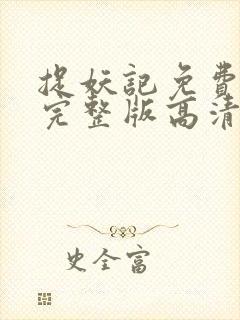 捉妖記免費
完整版高清
史全富